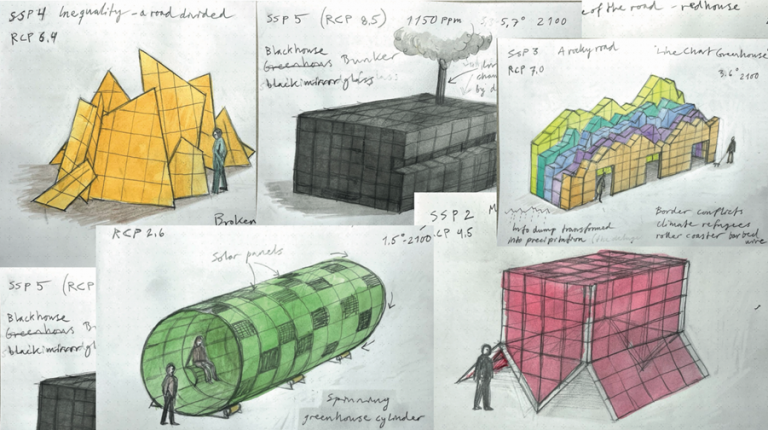 SSP 4 Inequality – a road divided
RCP 6.4
SSP 5 (RCP 8.5) 1150 ppm 5,7° 2100
Blackhouse
Greenhous Bunker
black mirror glass
e of the road - redhouse
SSP 3 A rocky road "Line Chart Greenhouse"
RCP 7.0
3.6° 2100
Broken
Info dump transformed
into precipitation
Border conflicts
climate refugees
roller coaster barbed
wire
SSP 2 M
CP 4.5
RCP 2.6
1.5°-2100
Solar panels
Spinning
greenhouse cylinder
SSP 5 (RCP
Blackhouse
Greenhous B
black mirror gl